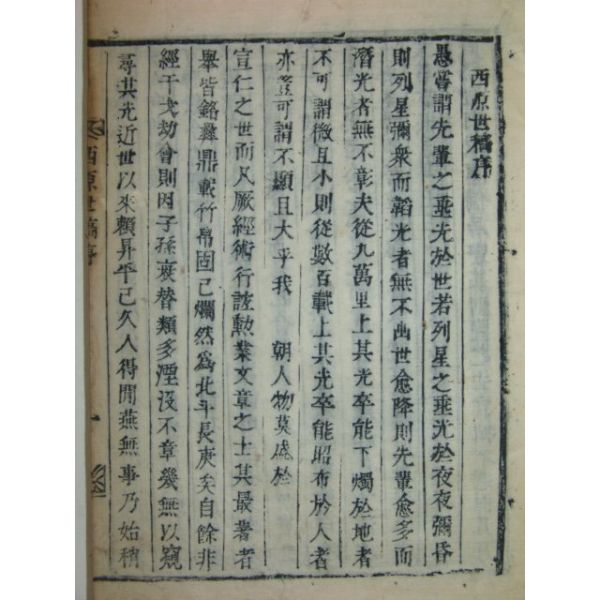 西原世稿序
愚嘗謂先輩之垂光於世若列星之垂光於夜夜彌昏
則列星彌衆而韜光者無不幽世愈降則先輩愈多而
潛光者無不彰夫從九萬里上其光卒能下燭於地者
不可謂微且小則從數百載上其光卒能昭布於人者
亦豈可謂不顯且大乎我 朝人物莫盛於
宣仁之世而凡厥經術行誼勳業文章之士其最著者
舉皆銘彝鼎載竹帛固已爛然為北斗長庚矣自餘非
經干戈劫會則因子孫衰替類多湮沒不章幾無以窺
尋其光近世以來賴昇平已久人得閒燕無事乃始稍
西原世稿序